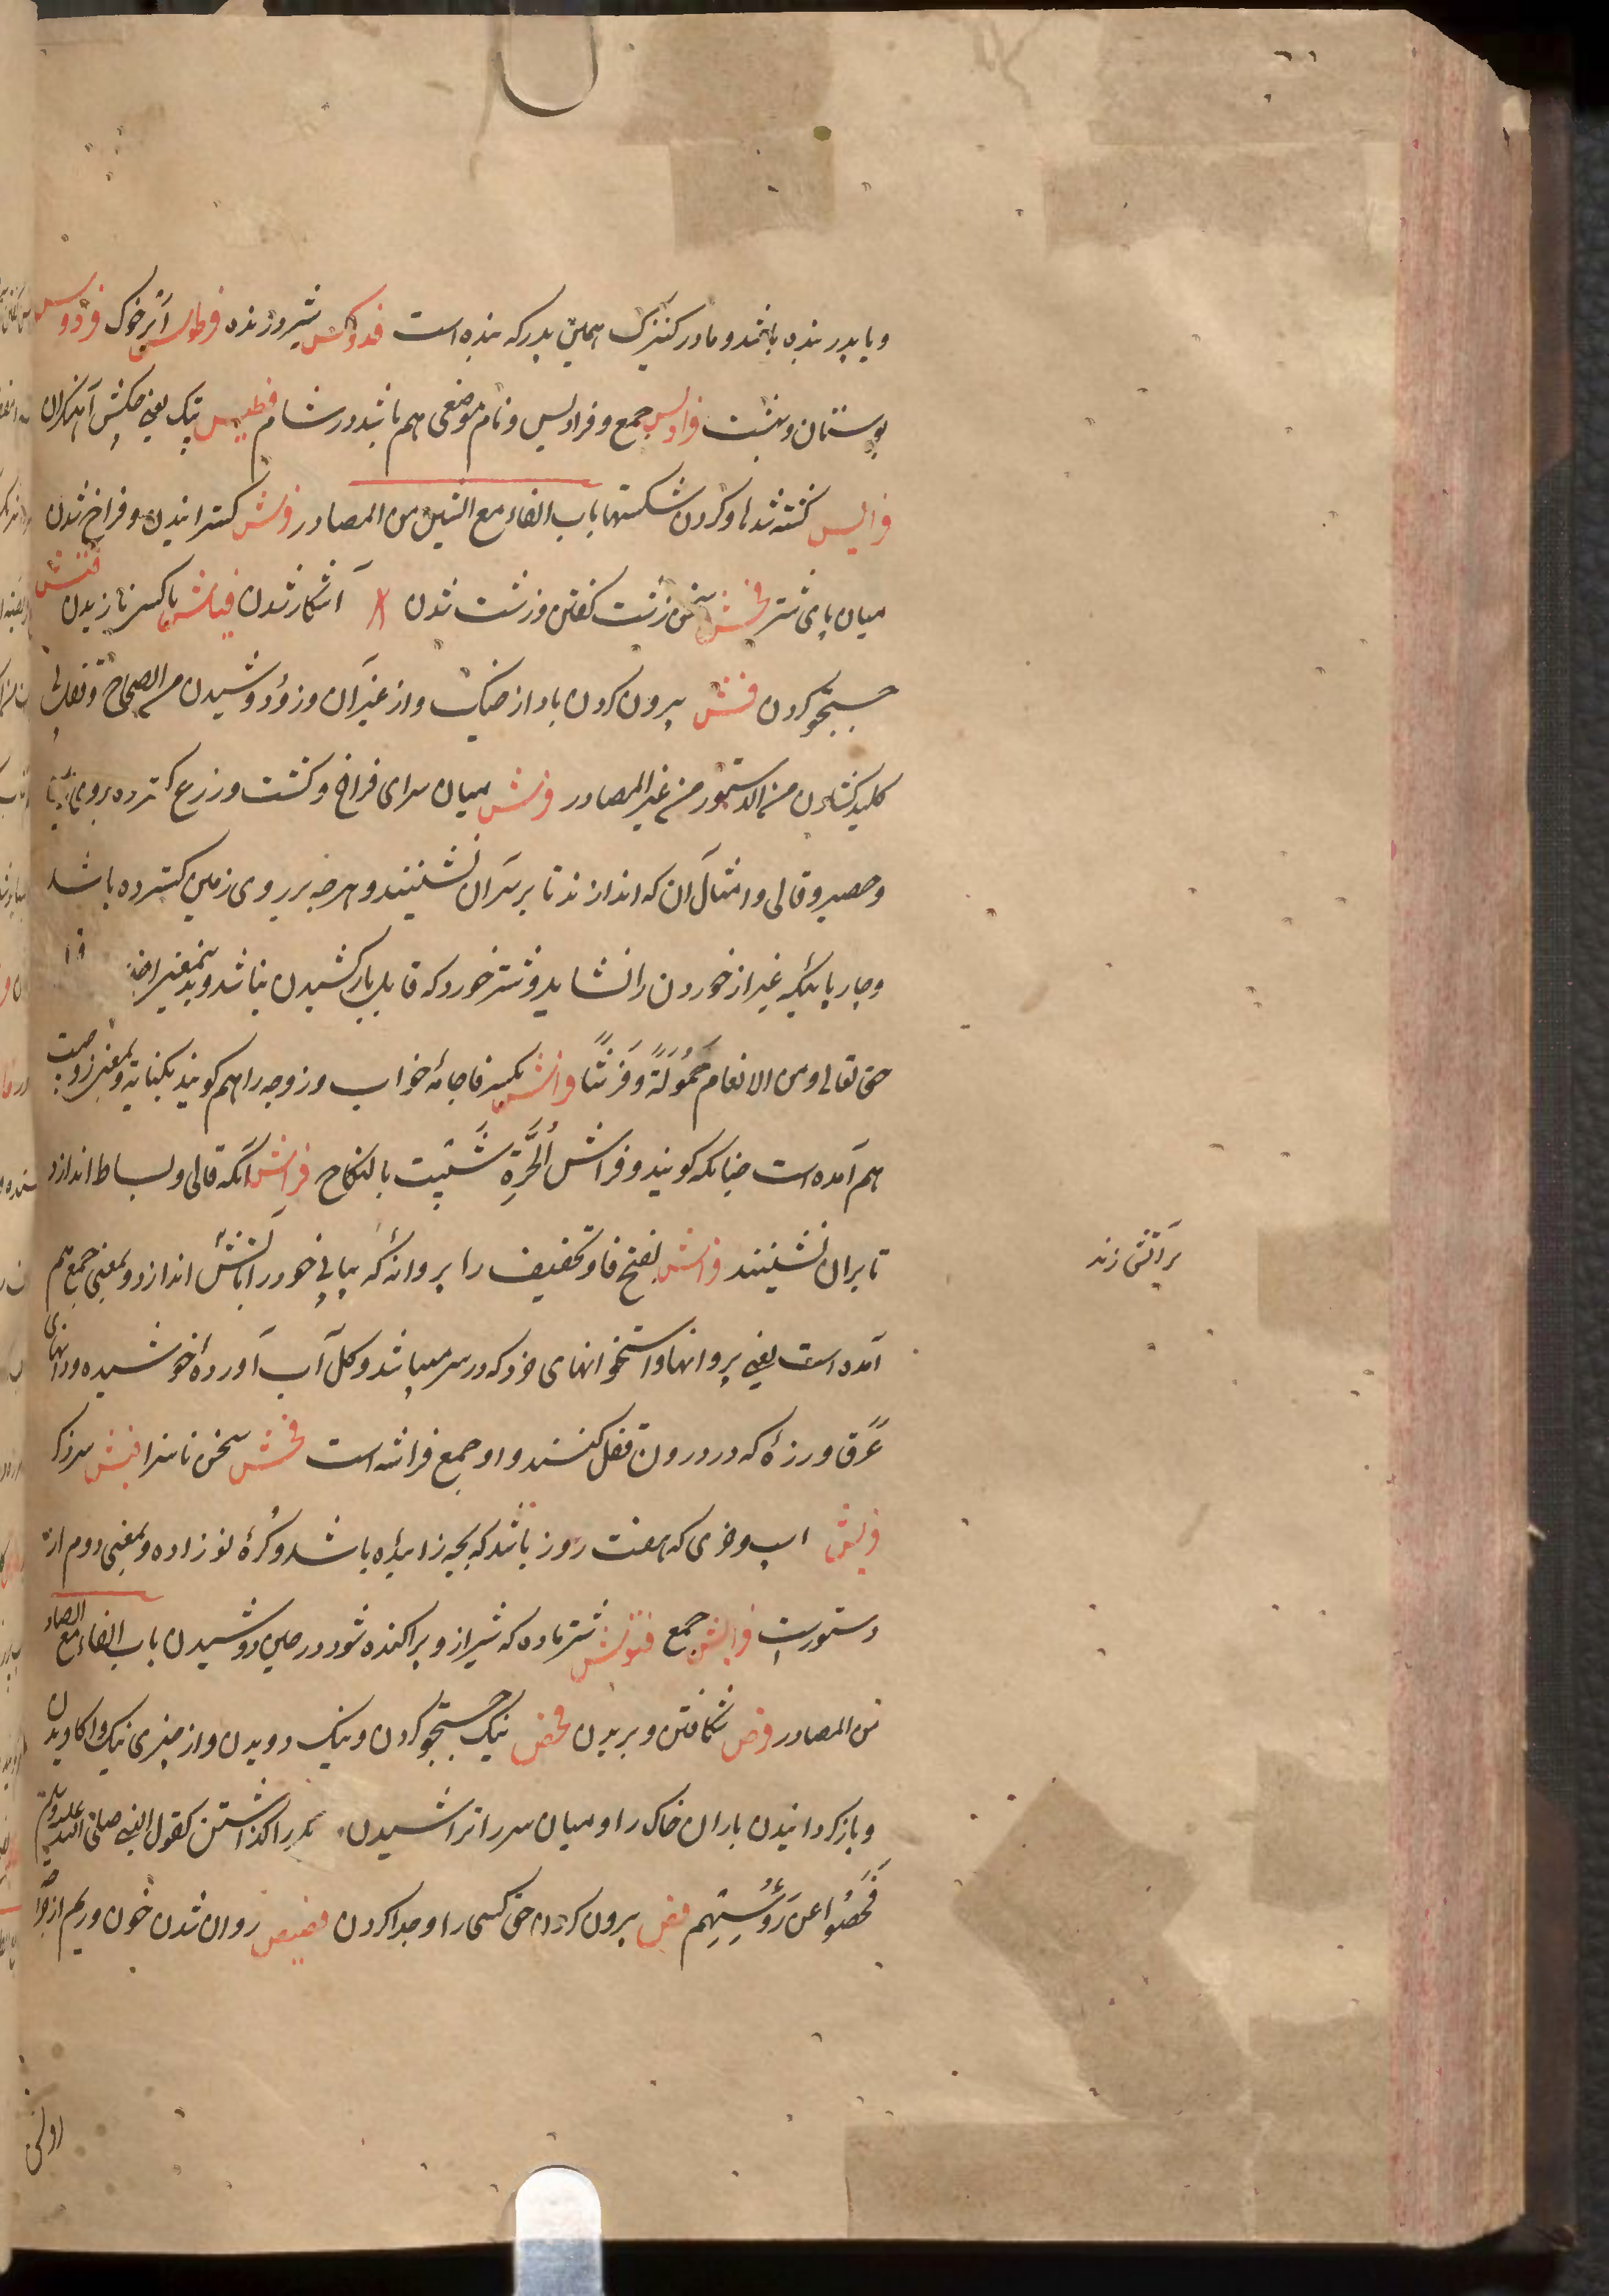 و یا پدر بنده باشد و مادر کنیزک همین پدر که بنده است فدوکس شیر درنده فرطوس اثر خوک فردوس
بوستان بهشت فرادیس جمع و فرادیس و نام موضعی هم باشد در شام فطیس پتک یعنی چکش آهنگران
فرایس کشته شدها و کردن شکستها باب الفاء مع الشین من المصادر فرش گسترانیدن و فراخ شدن
میان پای شتر فحش سخن زشت گفتن و زشت شدن آشکار شدن فیاش باکسر نازیدن فتش
جستجو کردن فش بیرون کردن باد از خیک و از غیر آن و زود دوشیدن من الصحاح و قفل بی
کلید کشادن من الدستور من غیر المصادر فرش میان سرای فراخ و کشت و زرع گسترده بروی
و حصیر و قالی و امثال آن که اندازند تا بر سر آن نشینند و هر چه بر روی زمین گسترده باشد
و چارپائیکه غیر از خوردن را نشاید و شتر خورد که قابل بار کشیدن نباشد و بدین معنی
حق تعالی و من الانعام حَمُولَةً وَفَرْشًا فراش بکسر فا جامۀ خواب و زوجه را هم گویند بکنایه و بمعنی زوجیت
هم آمده است چنانکه گویند و فراش الحُرَّةِ شَبَتَت بالنکاح فراش آنکه قالی و بساط اندازد
تا بر آن نشینند فراش بفتح فا و تخفیف را پروانه که پیاپی خود را بآتش اندازد و بمعنی جمع هم
بر آتش زند
آمده است یعنی پروانها و استخوانهای خرد که در سر میباشد و گل آب آوردۀ خوشیده و دانهای
عَرَق و رزۀ که در درون قفل کنند و او جمع فراشه است فحش سخن ناسزا فیش سر ذکر
فریش اسپ و خری که هفت روز باشد که بچه زائیده باشد و کرۀ نوزاده و بمعنی دوم از
دستورست فرایش جمع فتوش شتر ماده که شیر ازو پراکنده شود در حین دوشیدن باب الفاء مع الصاد
من المصادر فرص شکافتن و بریدن فحص نیک جستجو کردن و نیک دویدن و از چیزی نیک واکاویدن
و بازگردانیدن باران خاک را و میان سر را تراشیدن گذاشتن کقول النبی صلی الله علیه وسلم
فَحَصُوا عن رَؤُسِهِم فص بیرون کردن حق کسی را و جدا کردن فصیص روان شدن خون و ریم از جراحت